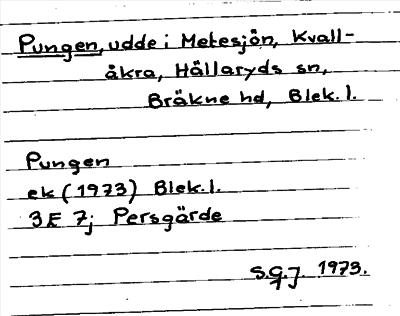 Pungen, udde i Metesjön, Kvall-
åkra, Hällaryds sn,
Bräkne hd, Blek. l.
Pungen
ek (1973) Blek. l.
3E 7j Persgärde
S.G.J. 1973.